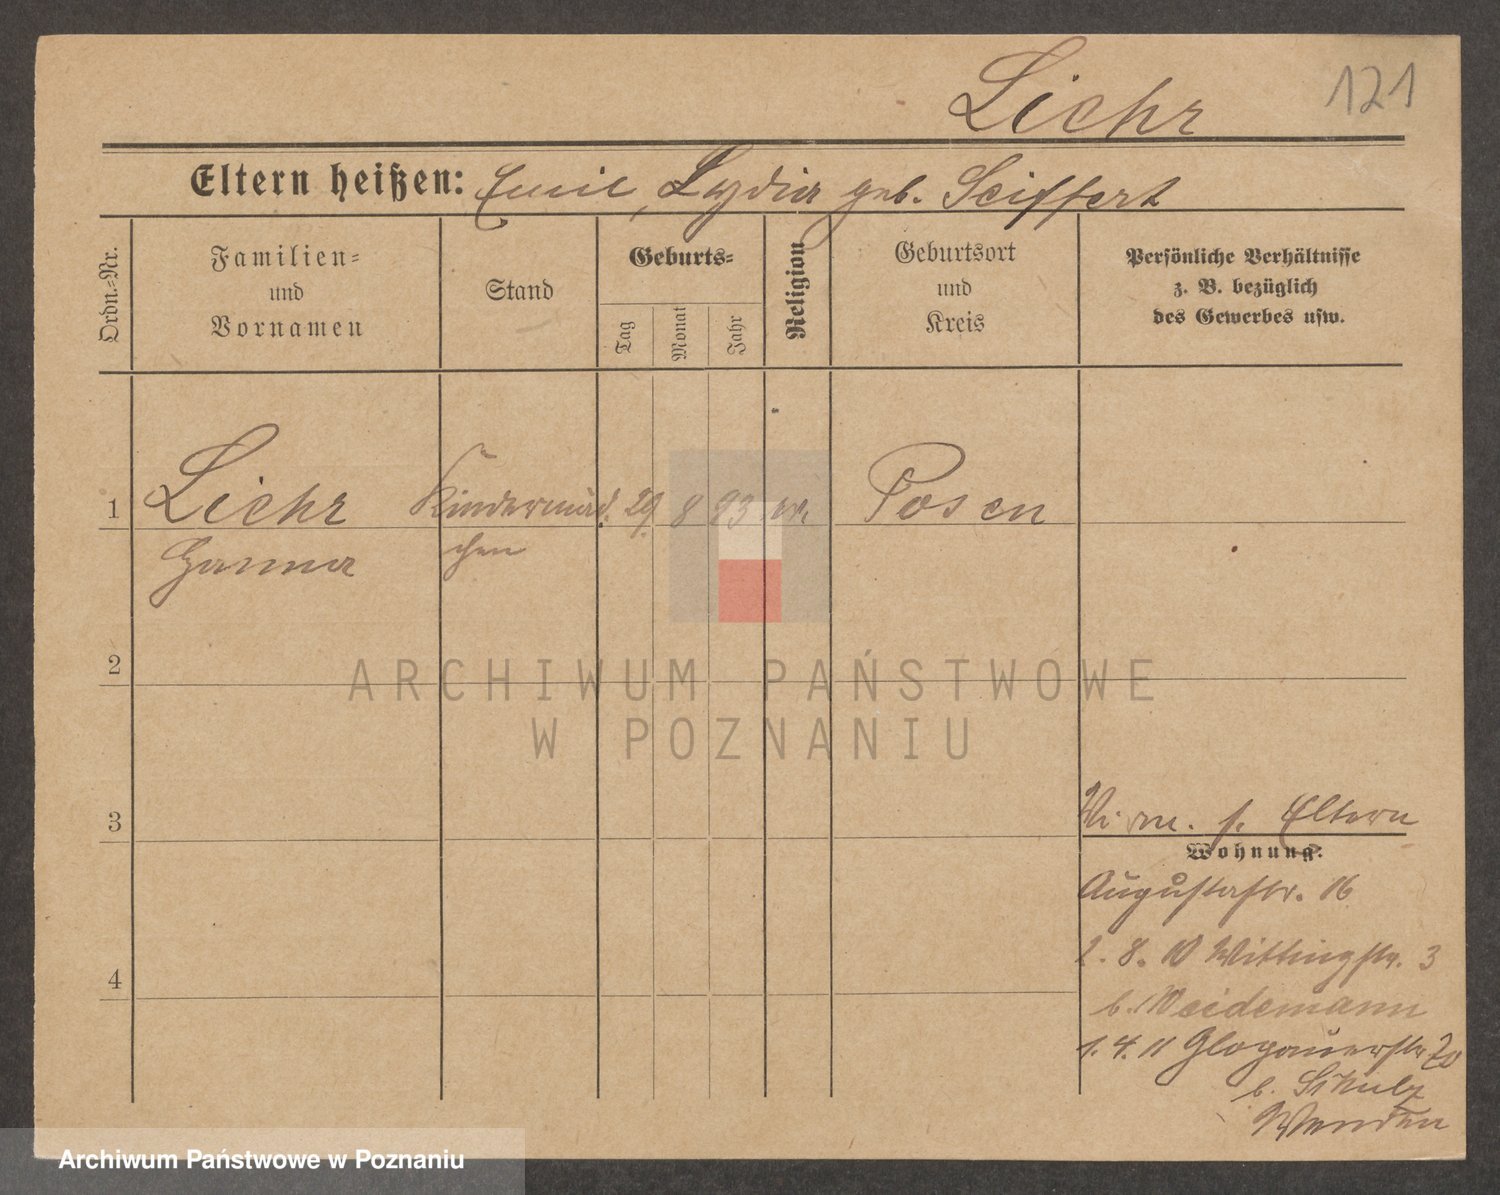 Liehr 121
Eltern heißen: Emil, Lydia geb. Seiffert
Ordn.-Nr.
Familien-
und
Vornamen
Stand
Geburts-
Tag
Monat
Jahr
Religion
Geburtsort
und
Kreis
Persönliche Verhältnisse
z. B. bezüglich
des Gewerbes usw.
1 Liehr Kindermäd. 29. 8 93 ev. Posen
Hanna chen
2
ARCHIWUM PAŃSTWOWE
W POZNANIU
3
s. Eltern
Wohnung:
Augustastr. 16
2. 8. 10 Wittingstr. 3
b. Weidemann
1. 4. 11 Glogauerstr 70
b. Schulz
Wenden
4
Archiwum Państwowe w Poznaniu